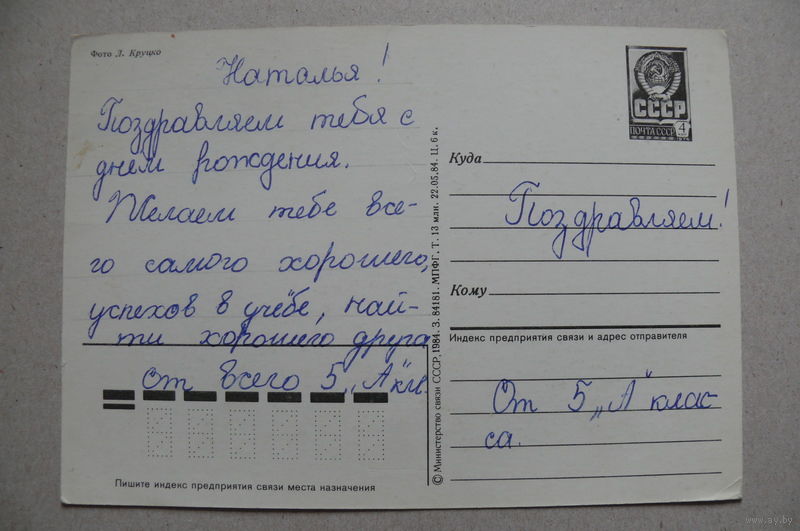 Фото Л. Круцко
Наталья!
Поздравляем тебя с
днем рождения.
Желаем тебе все-
го самого хорошего,
успехов в учёбе, най-
ти хорошего друга.
От всего 5 „А" кл.
Пишите индекс предприятия связи места назначения
© Министерство связи СССР, 1984. З. 84181. МПФГ. Т. 13 млн. 22.05.84. Ц. 6 к.
СССР
ПОЧТА СССР 4
Куда
Поздравляем!
Кому
Индекс предприятия связи и адрес отправителя
От 5 „А" клас-
са.
www.ay.by